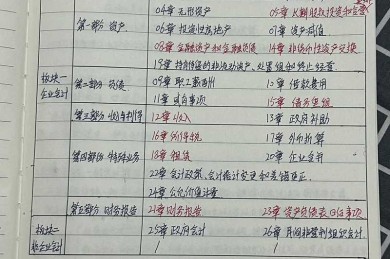 04章 无形资产 05章 长期股权投资和合营安排
第一部分 资产 06章 投资性房地产 07章 资产减值
08章 金融资产和金融负债 14章 非货币性资产交换
19章 持有待售的非流动资产、处置组和终止经营
板块一 企业会计
第二部分 负债 09章 职工薪酬 10章 借款费用
11章 或有事项 15章 债务重组
第三部分 收入与利得 12章 收入 13章 政府补助
16章 所得税 17章 外币折算
第四部分 特殊业务 18章 租赁 20章 企业合并
22章 会计政策、会计估计变更和差错更正
24章 公允价值计量
第五部分 财务报告 21章 财务报告 23章 资产负债表日后事项
板块二 非企业会计 25章 政府会计 26章 民间非营利组织会计